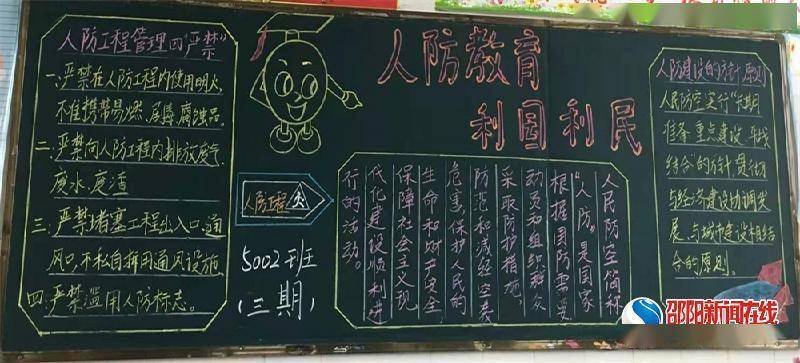 人防教育
利国利民
人防工程管理四"严禁"
一、严禁在人防工程内使用明火,
不准携带易燃、易爆、腐蚀品。
二、严禁向人防工程内排放废气
废水、废渣
三、严禁堵塞工程出入口、通
风口,不私自挪用通风设施
四、严禁滥用人防标志。
人防工程
5002班
(三期)
人民防空简称
"人防"。是国家
根据国防需要
动员和组织群众
采取防护措施,
防范和减轻空袭
危害,保护人民的
生命和财产安全,
保障社会主义现
代化建设顺利进
行的活动。
人防建设的方针原则
人民防空实行"长期
准备重点建设、平战
结合"的方针贯彻
与经济建设协调发
展、与城市建设相结
合的原则。
邵阳新闻在线